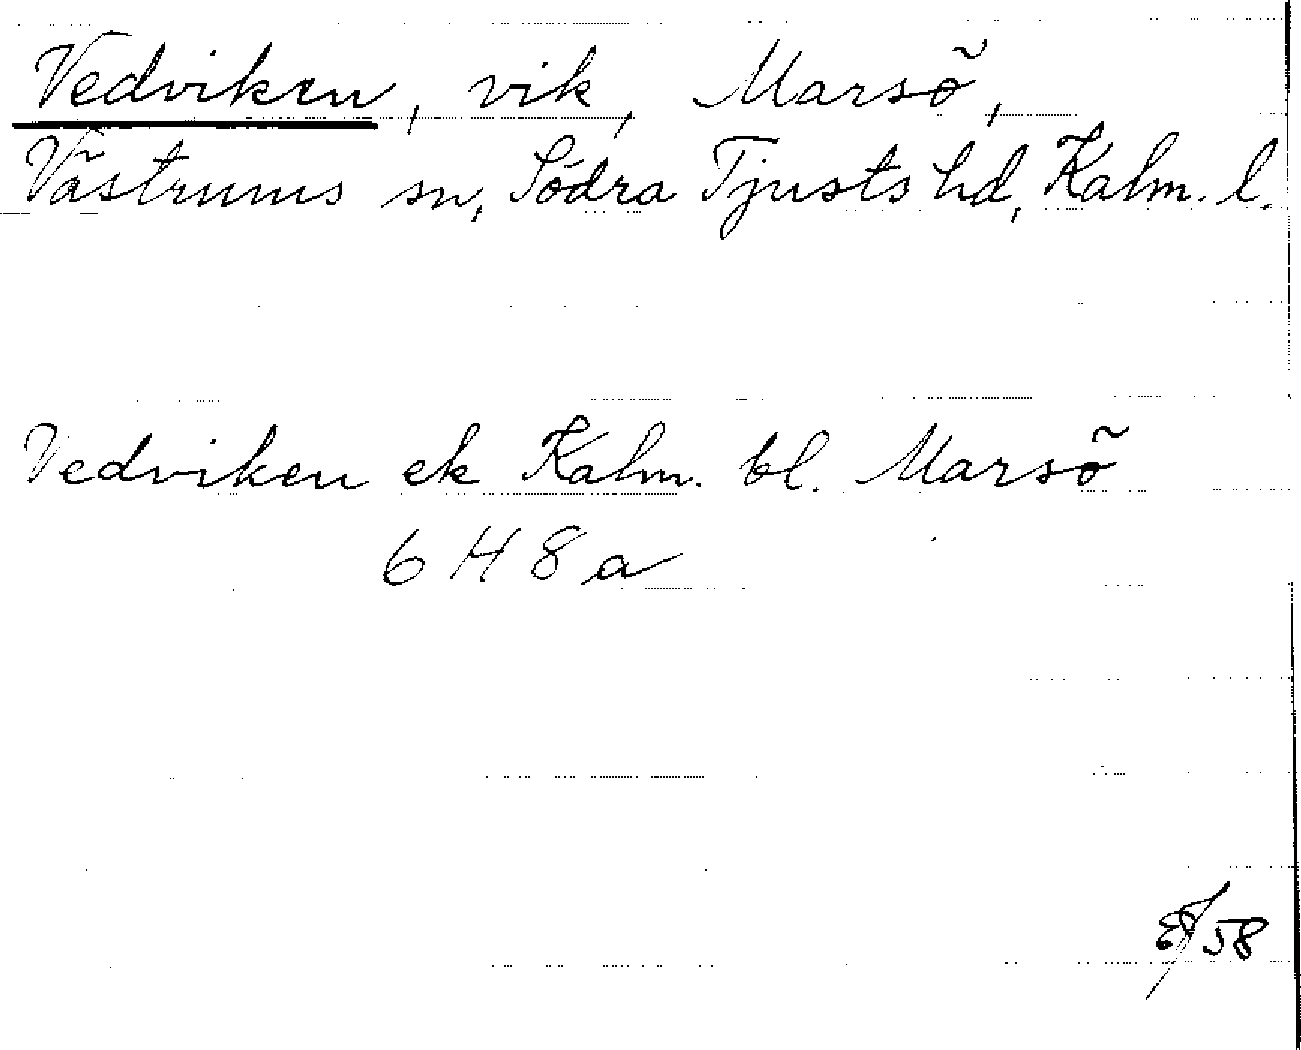 Vedviken, vik, Marsö,
Västrums sn, Södra Tjusts hd, Kalm. l.
Vedviken ek Kalm. bl. Marsö
6 H 8 a
58